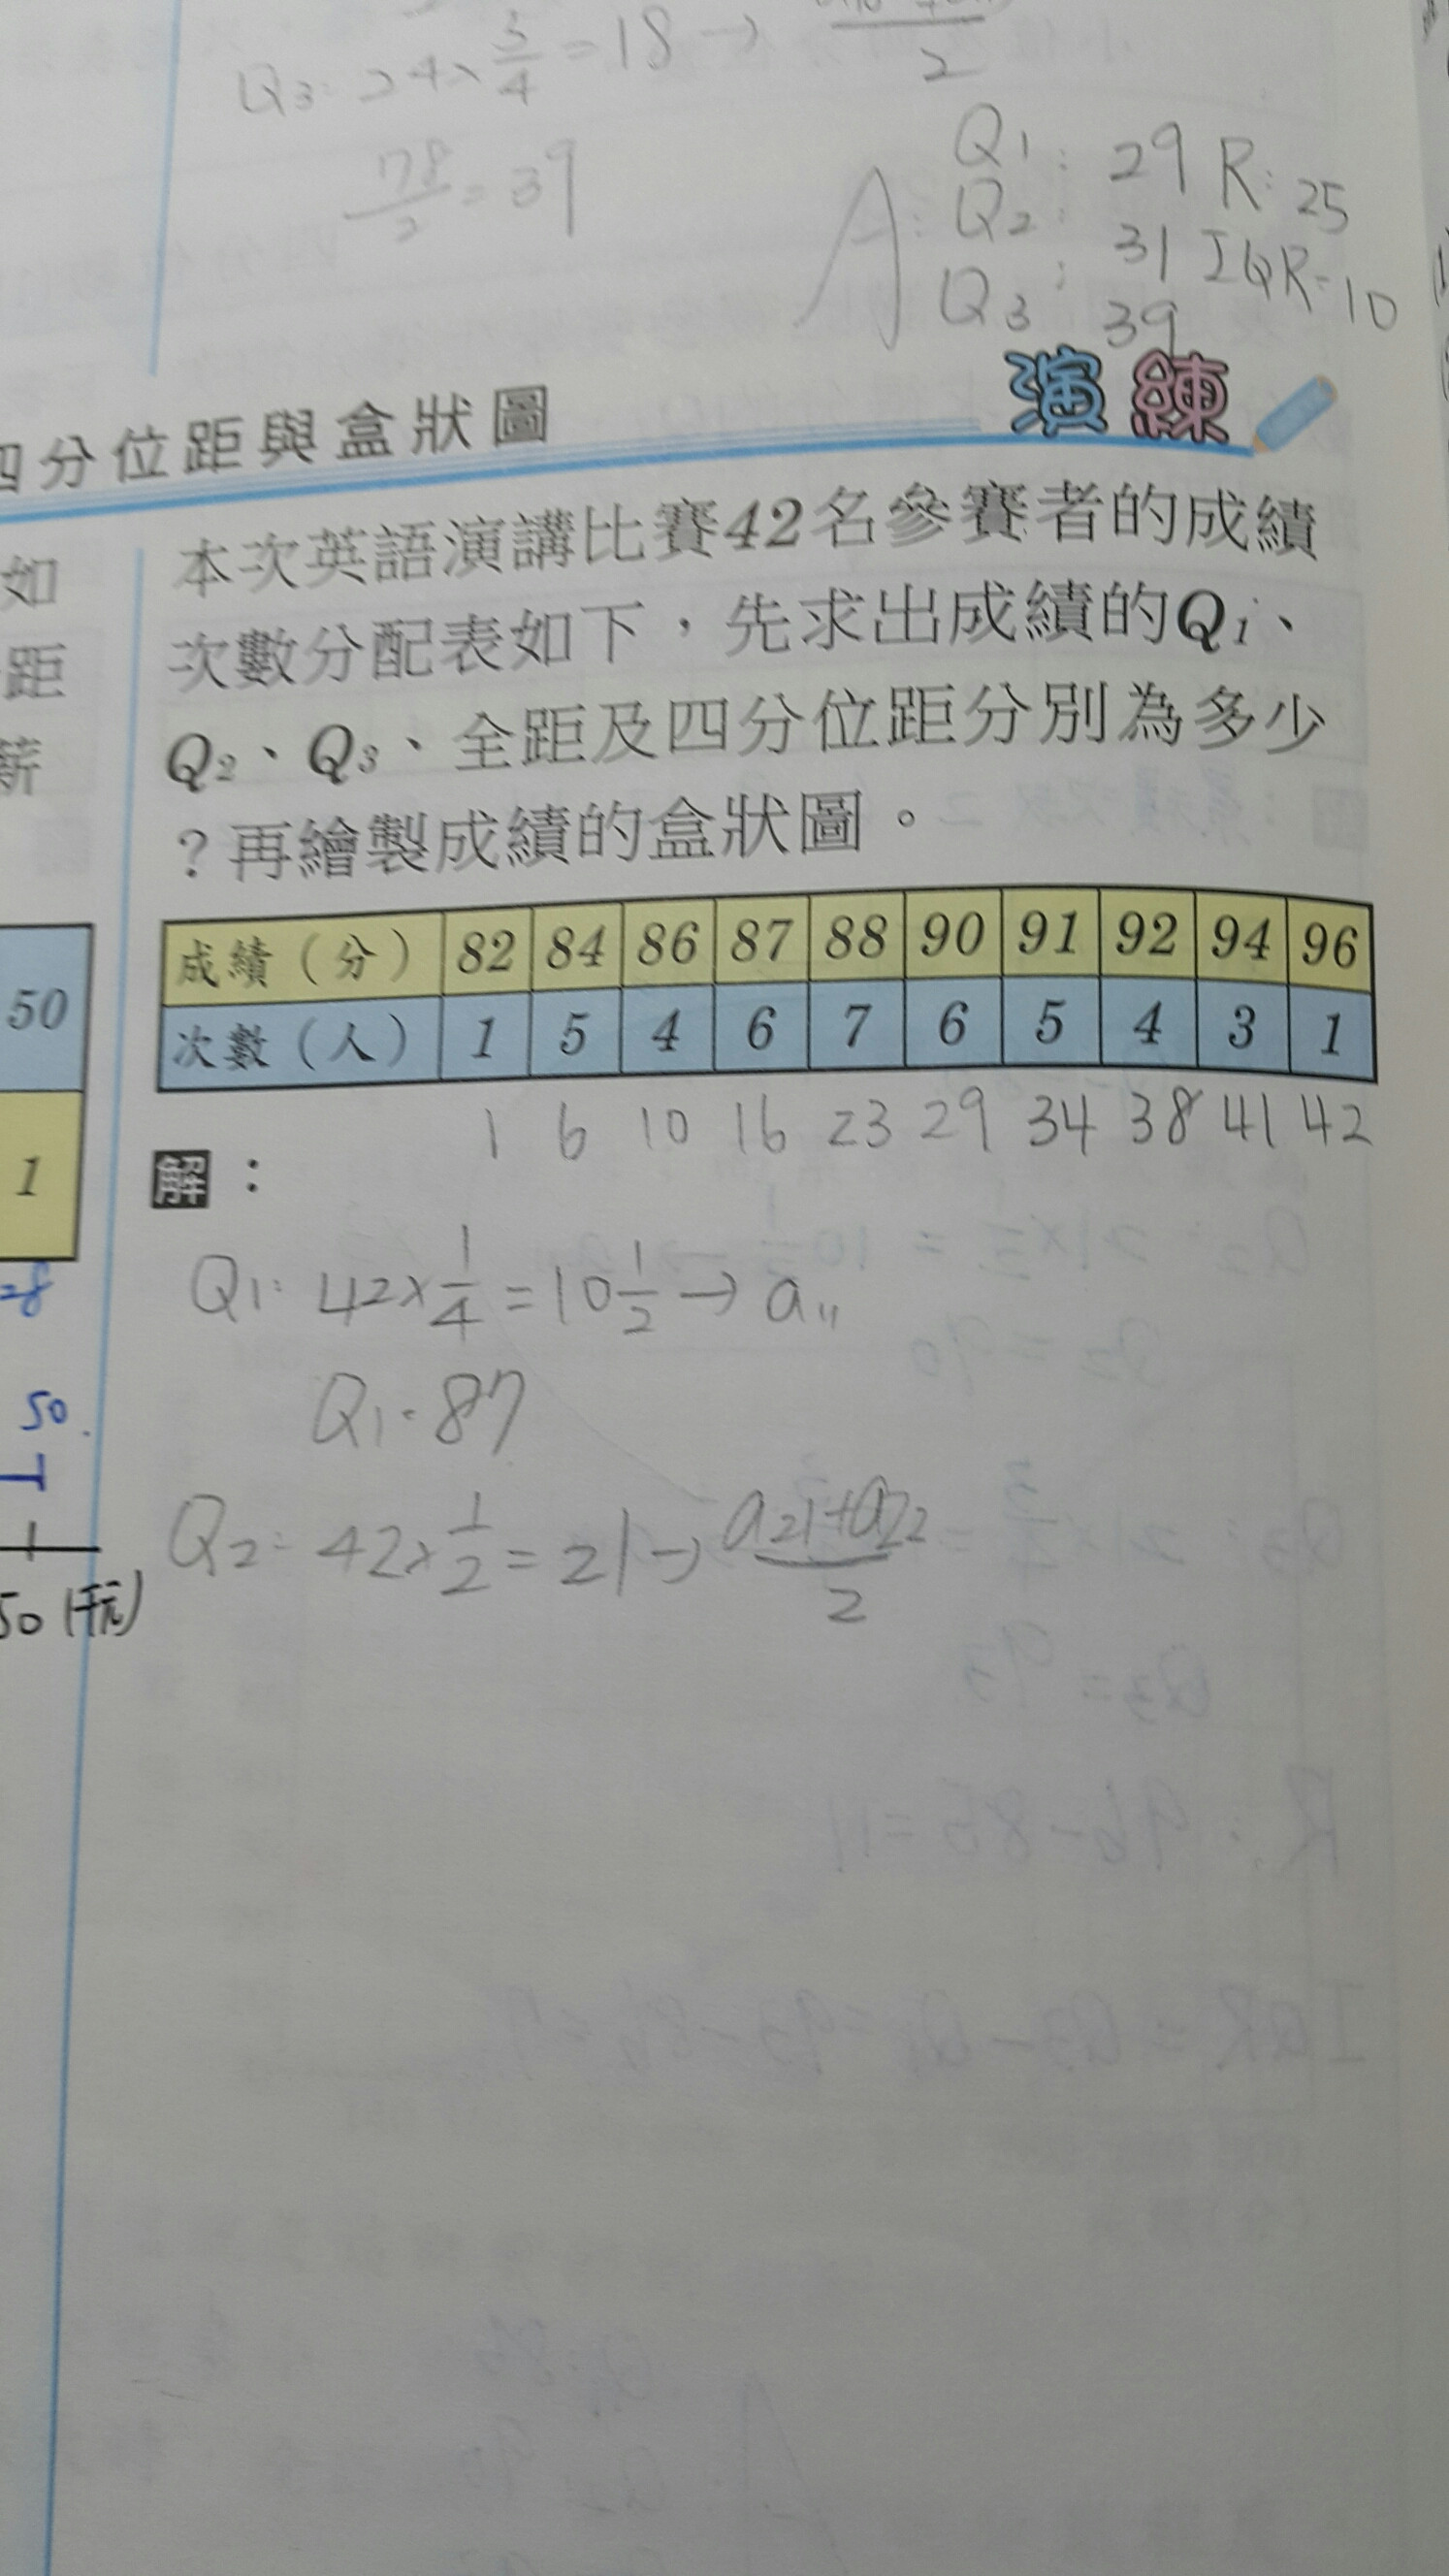 Q3: 24×3/4=18→
2
78/2=39
Q1: 29 R: 25
A: Q2: 31 IQR=10
Q3: 39
四分位距與盒狀圖
演練
如
距
薪
本次英語演講比賽42名參賽者的成績
次數分配表如下，先求出成績的Q1、
Q2、Q3、全距及四分位距分別為多少
？再繪製成績的盒狀圖。
50
1
成績（分） 82 84 86 87 88 90 91 92 94 96
次數（人） 1 5 4 6 7 6 5 4 3 1
1 6 10 16 23 29 34 38 41 42
解：
28
Q1: 42×1/4=10 1/2→a11
Q1=87
50
Q2: 42×1/2=21→(a21+a22)/2
50(千元)